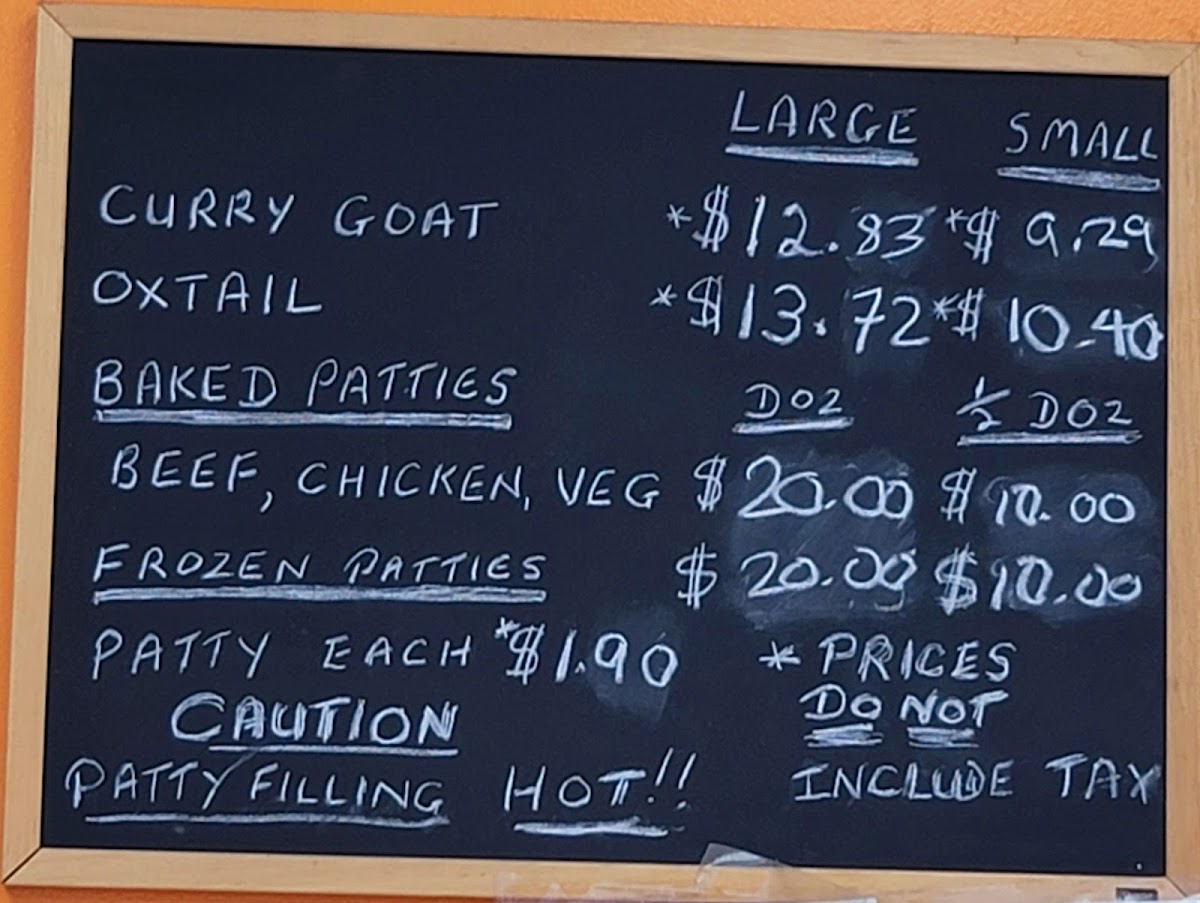 LARGE SMALL
CURRY GOAT *$12.83 *$ 9.29
OXTAIL *$13.72 *$ 10.40
BAKED PATTIES DOZ ½ DOZ
BEEF, CHICKEN, VEG $20.00 $10.00
FROZEN PATTIES $20.00 $10.00
PATTY EACH *$1.90 * PRICES
CAUTION DO NOT
PATTY FILLING HOT!! INCLUDE TAX